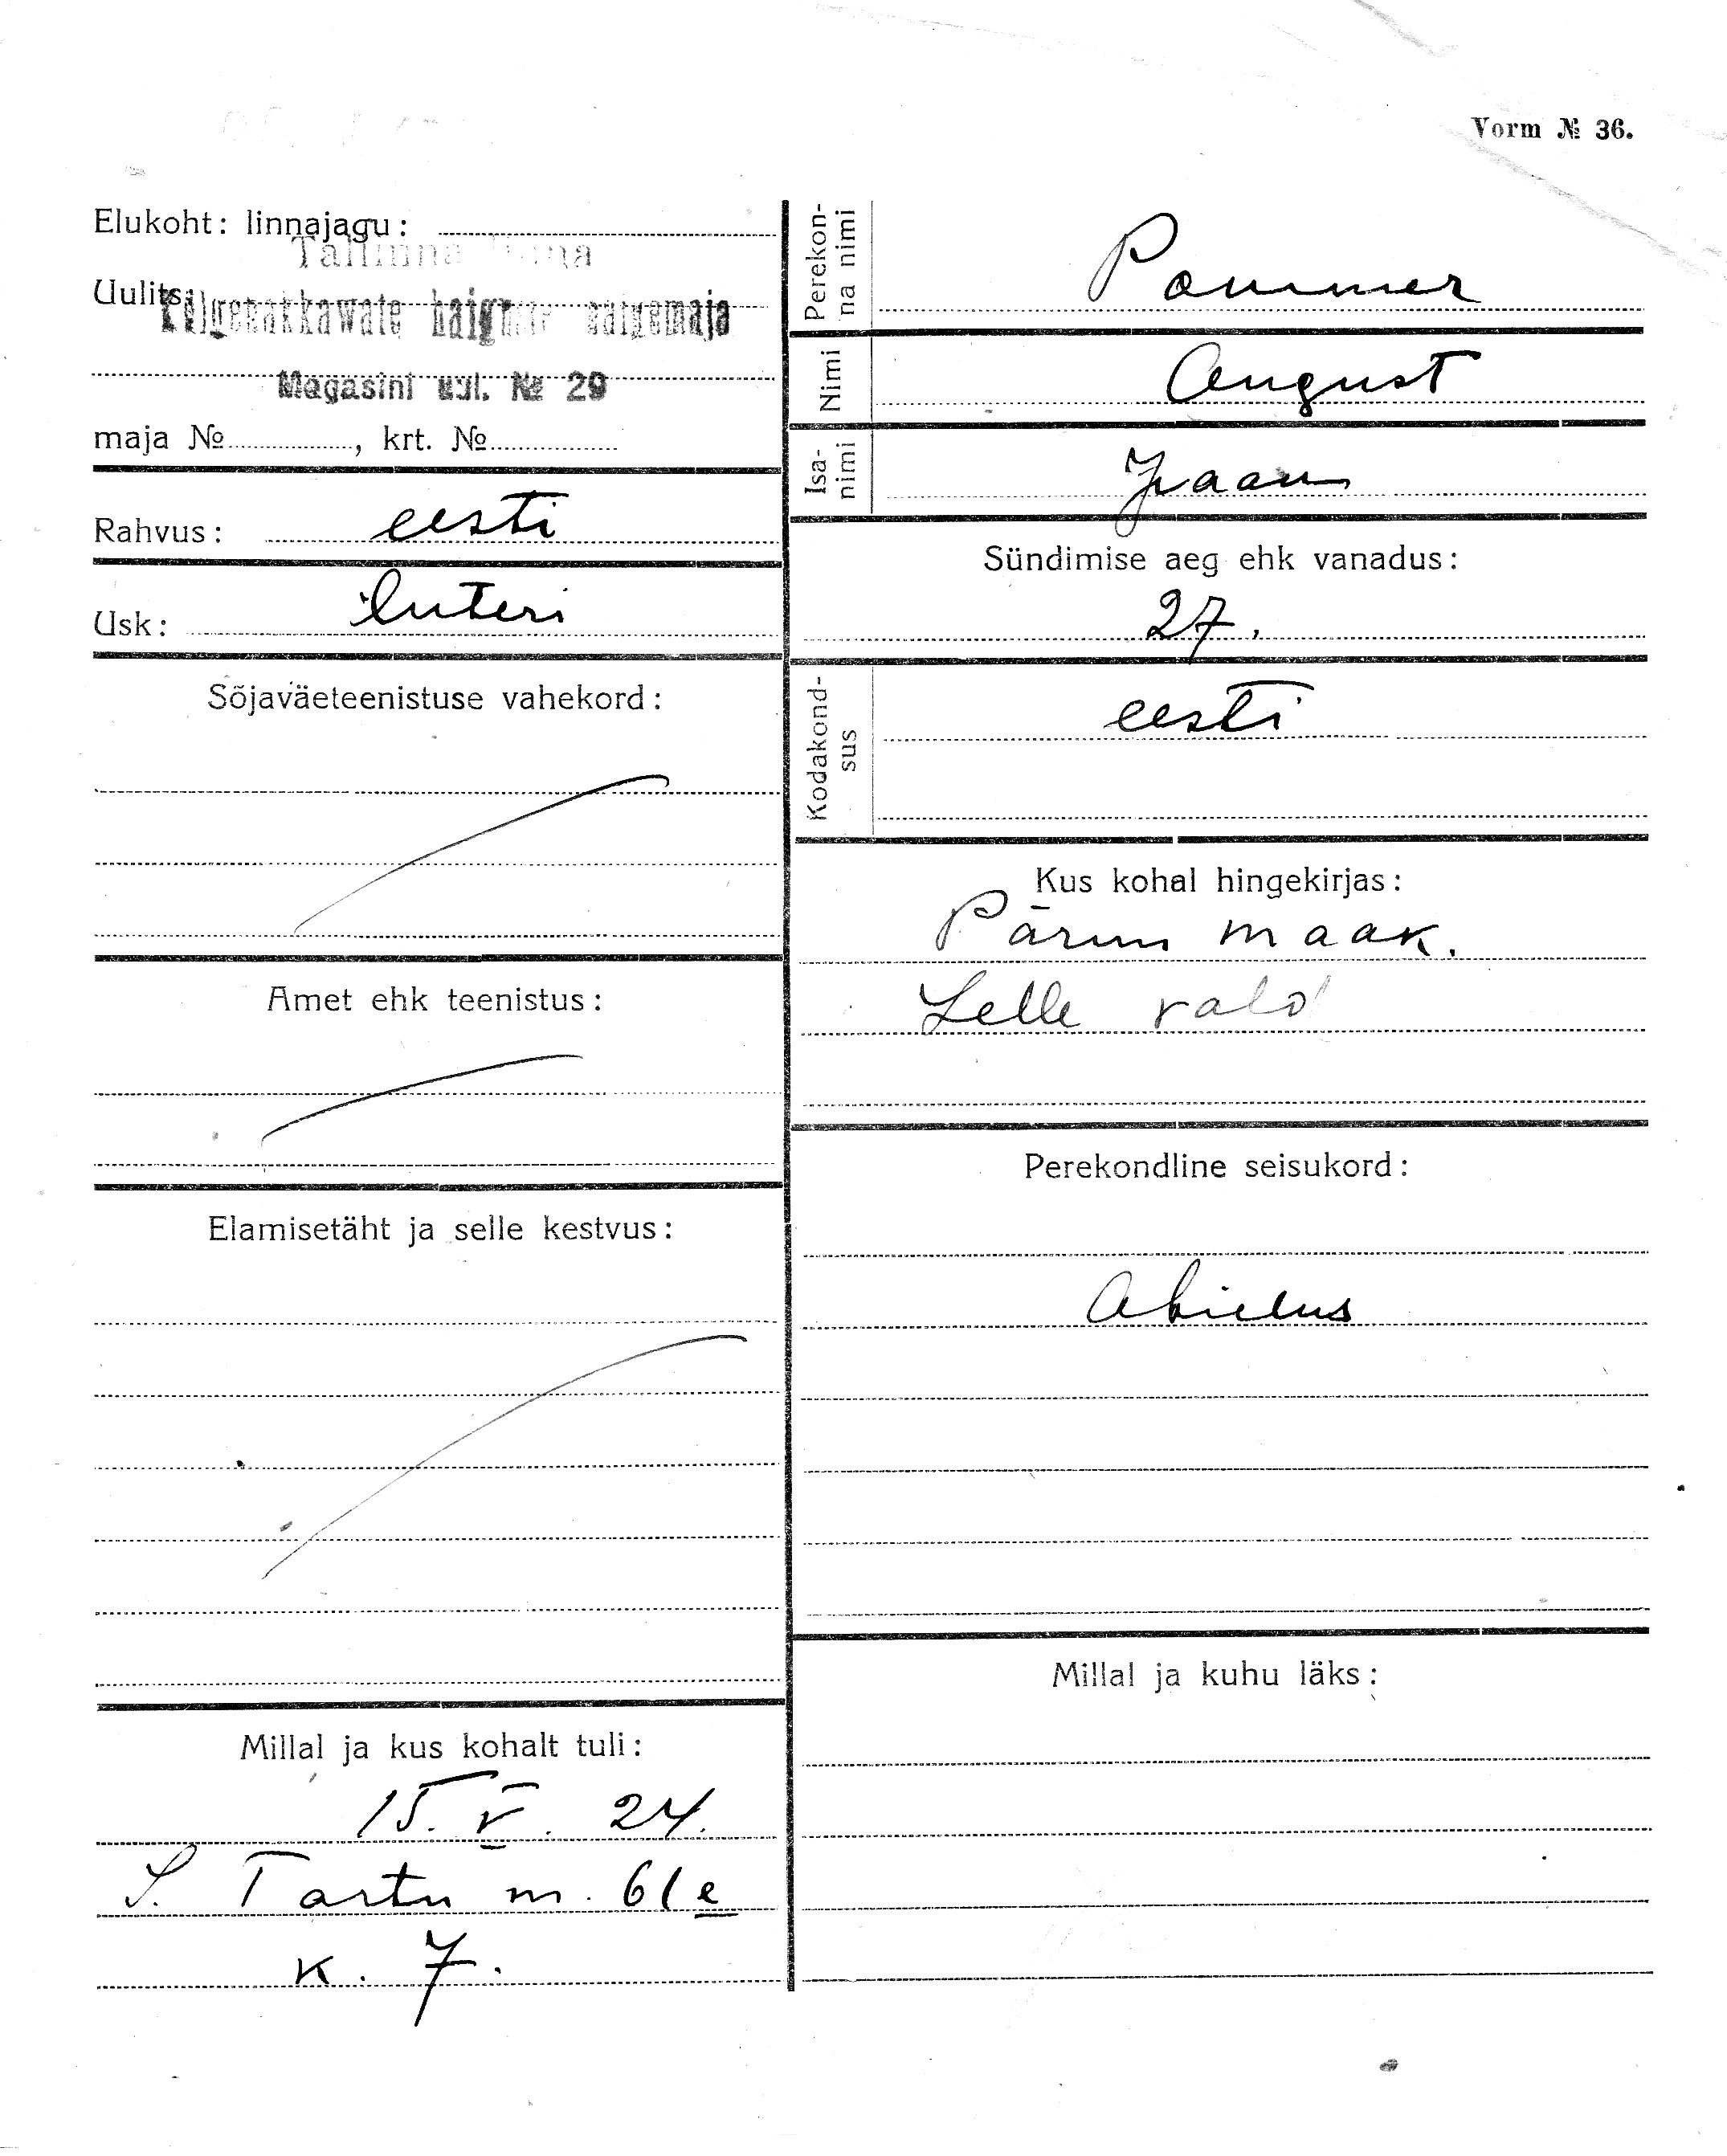 Vorm № 36.
Elukoht: linnajagu:
Tallinna linna
Uulits:
Külgehakkawate haiguste haigemaja
Magasini uul. № 29
maja №, krt. №
Rahvus: eesti
Usk: luteri
Sõjaväeteenistuse vahekord:
Amet ehk teenistus:
Elamisetäht ja selle kestvus:
Millal ja kus kohalt tuli:
15. V. 24.
S. Tartu m. 61e
k. 7.
Perekon-
na nimi
Pommer
Nimi August
Isa-
nimi
Jaan
Sündimise aeg ehk vanadus:
27.
Kodakond-
sus
eesti
Kus kohal hingekirjas:
Pärnu maak.
Lelle vald
Perekondline seisukord:
Abielus
Millal ja kuhu läks: